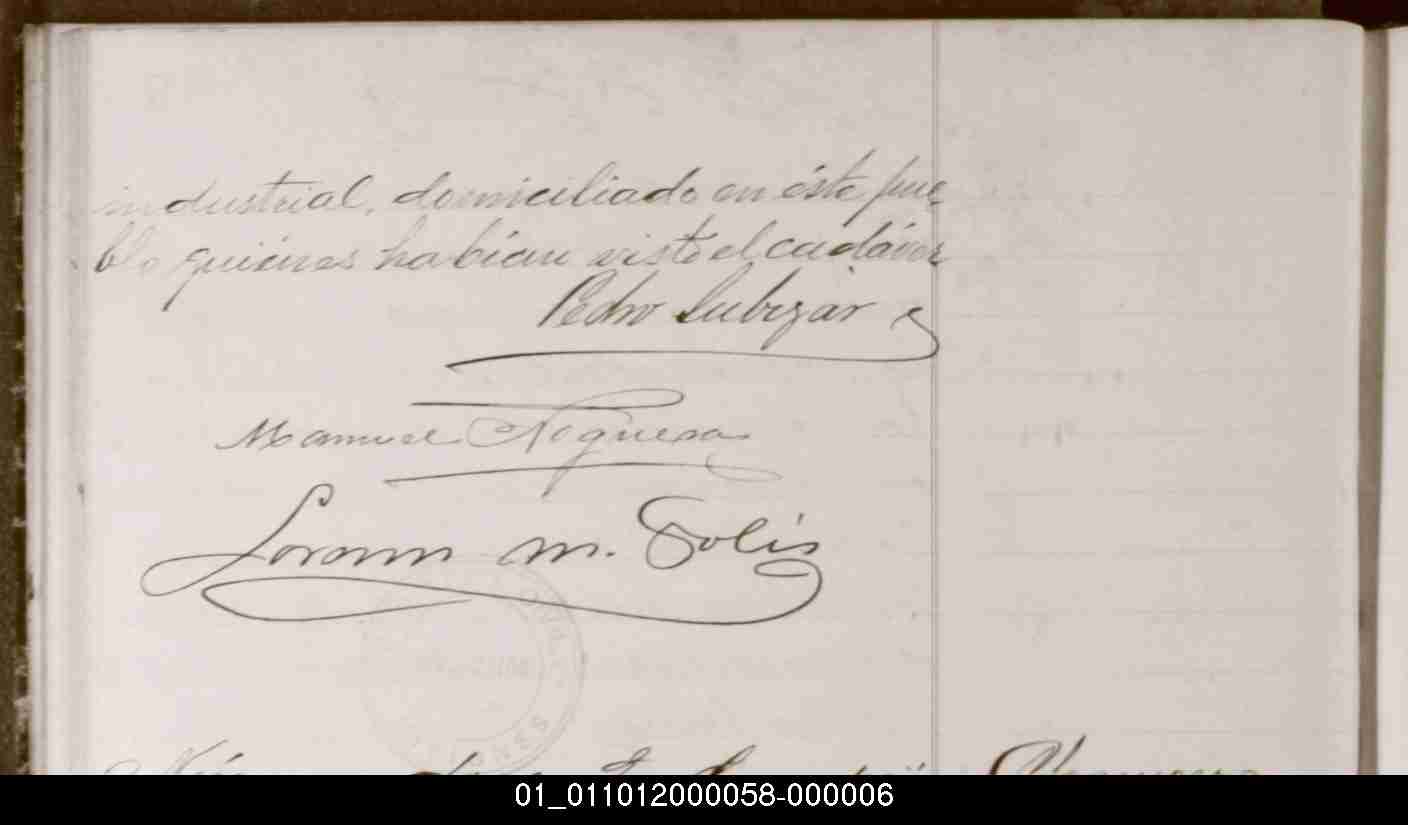 industrial, domiciliado en éste pue-
blo quiénes habían visto el cadáver
Pedro Lubizar
Manuel Noguera
m. Solis
01_011012000058-000006